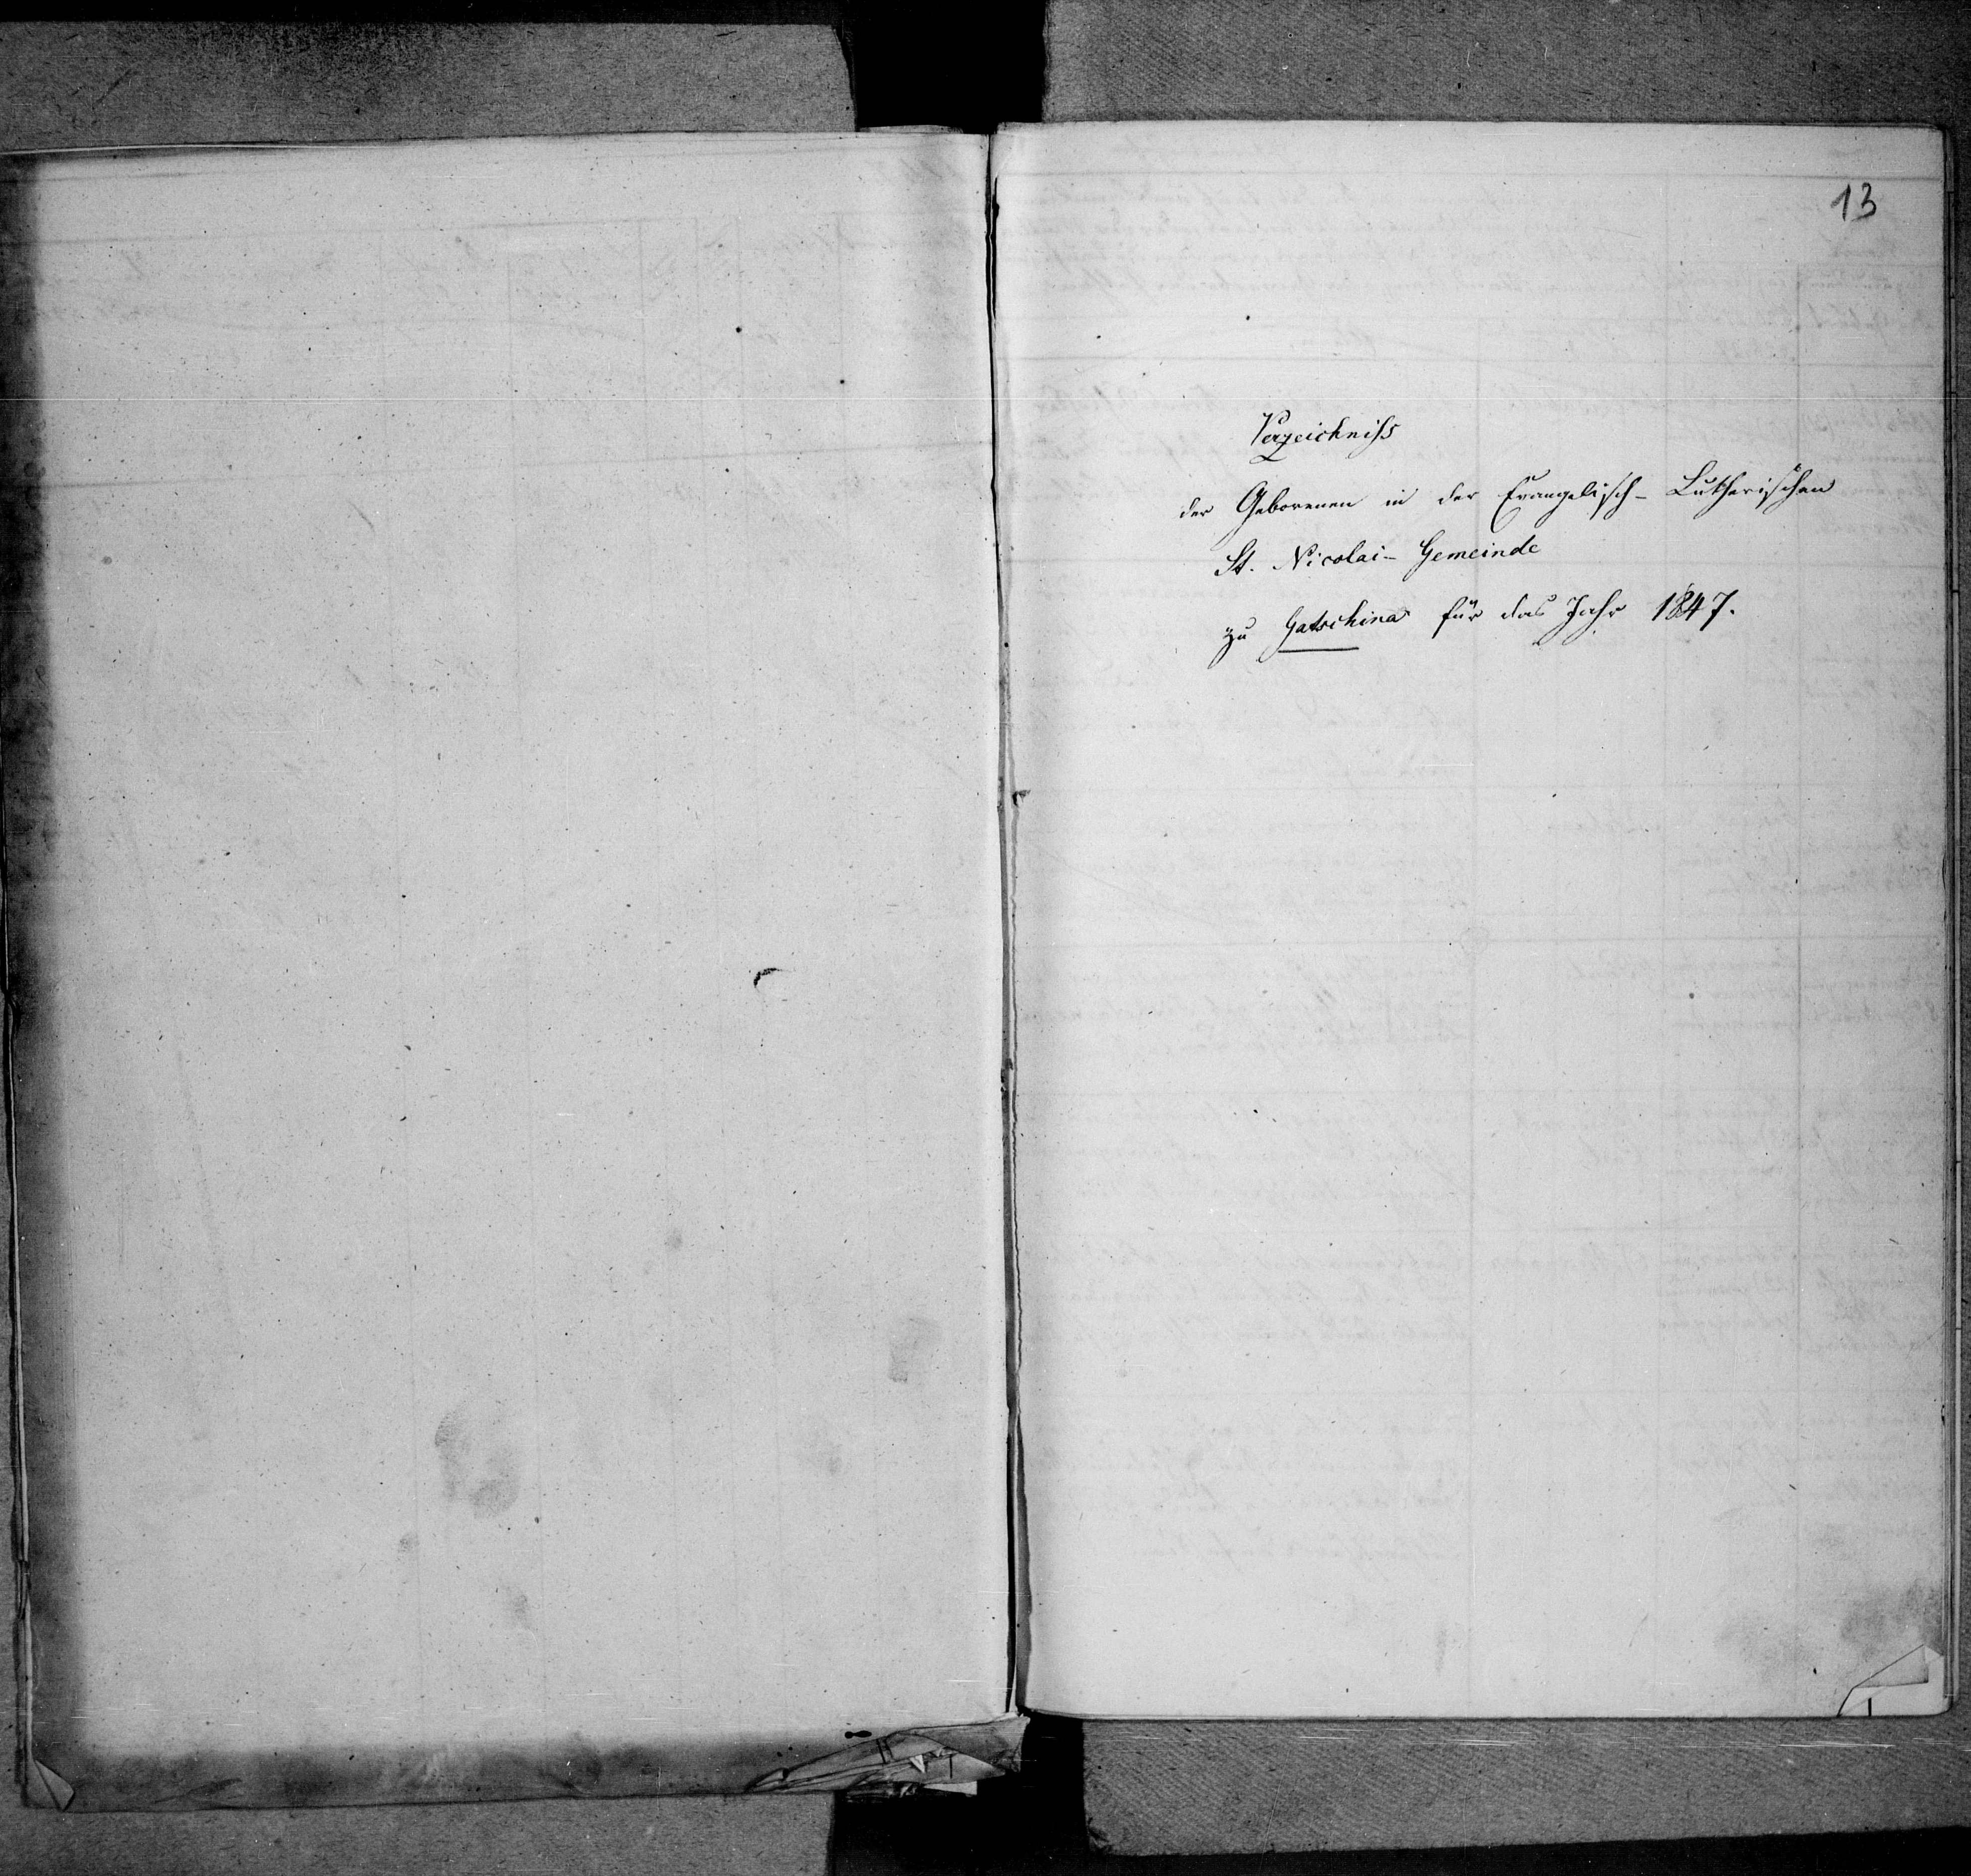 13
Verzeichniss
der Geborenen in der Evangelisch-Lutherischen
St. Nicolai-Gemeinde
zu Gatschina für das Jahr 1847.